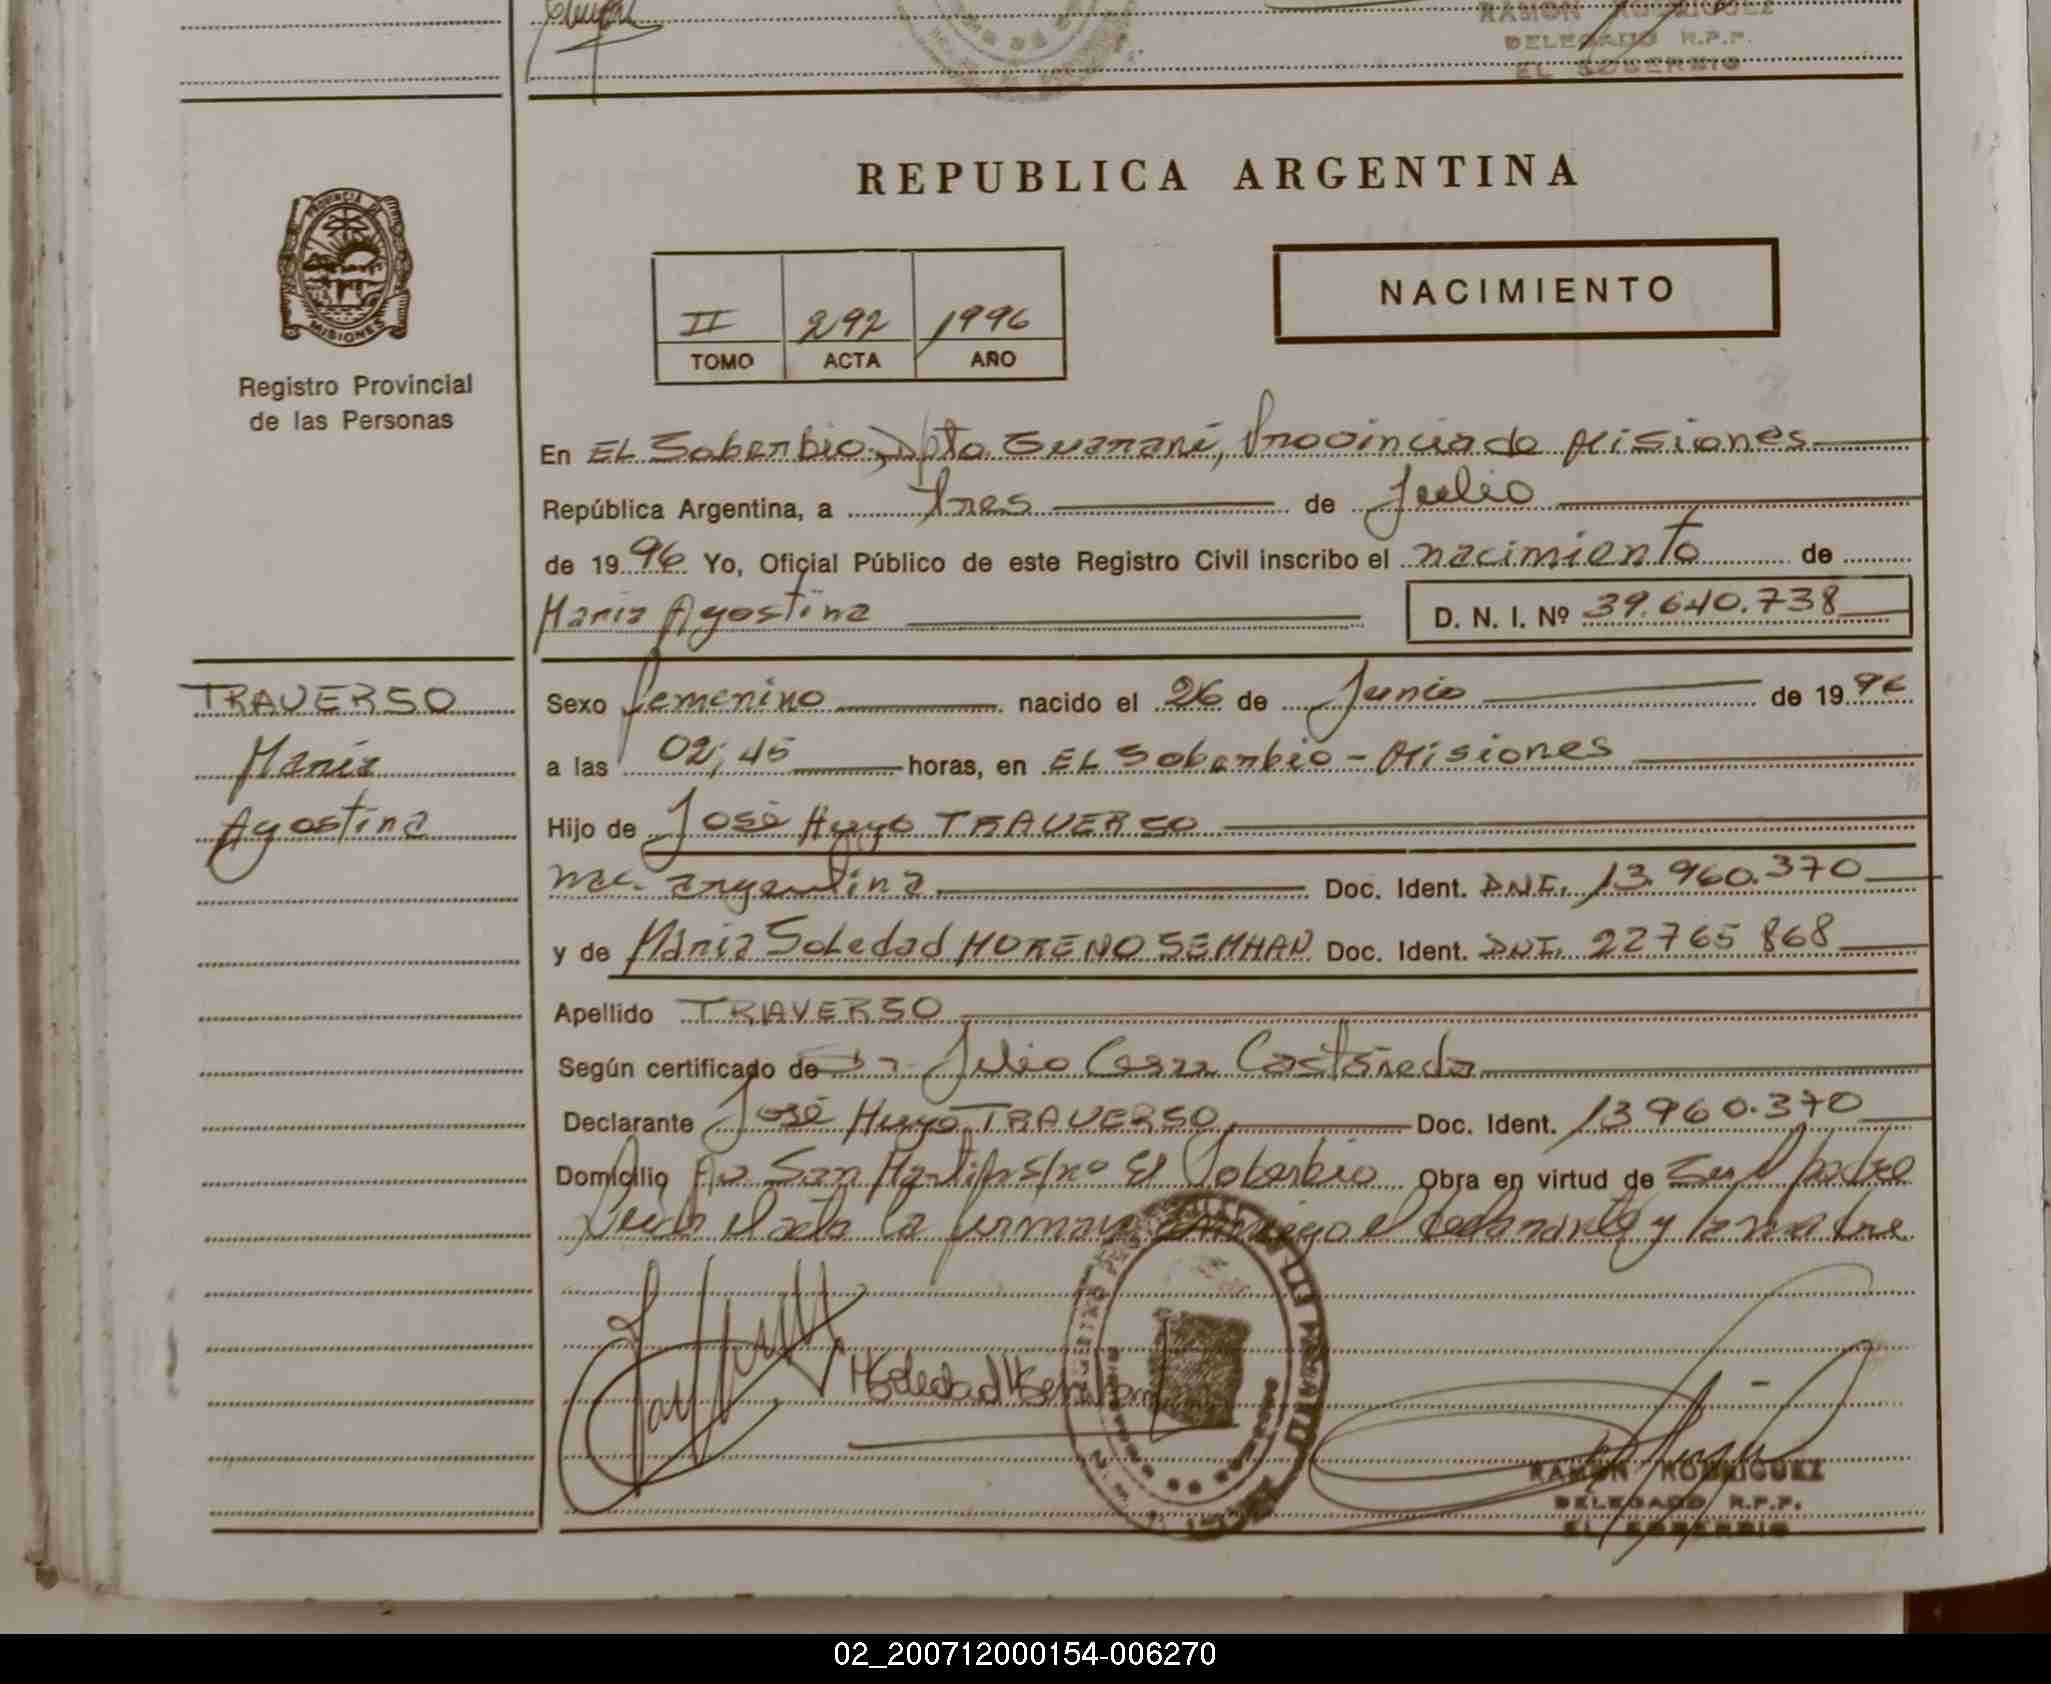 RAMON RODRIGUEZ
DELEGADO R.P.P.
EL SOBERBIO
REPUBLICA ARGENTINA
PROVINCIA DE
MISIONES
Registro Provincial
de las Personas
II 292 1996
TOMO ACTA AÑO
NACIMIENTO
En EL Soberbio, Dpto Guaraní, Provincia de Misiones
República Argentina, a tres de Julio
de 1996 Yo, Oficial Público de este Registro Civil inscribo el nacimiento de
María Agostina D. N. I. Nº 39.640.738
TRAVERSO
María
Agostina
Sexo femenino nacido el 26 de Junio de 1996
a las 02,45 horas, en EL Soberbio - Misiones
Hijo de José Hugo TRAVERSO
nac. argentina Doc. Ident. DNI. 13.960.370
y de María Soledad MORENO SEMHAN Doc. Ident. DNI. 22765868
Apellido TRAVERSO
Según certificado de Dr. Julio Cesar Castañeda
Declarante José Hugo TRAVERSO Doc. Ident. 13960.370
Domicilio Av San Martin s/nº El Soberbio Obra en virtud de ser el padre
Leida el acta la firman conmigo el declarante y la madre
RAMON RODRIGUEZ
DELEGADO R.P.P.
EL SOBERBIO
02_200712000154-006270